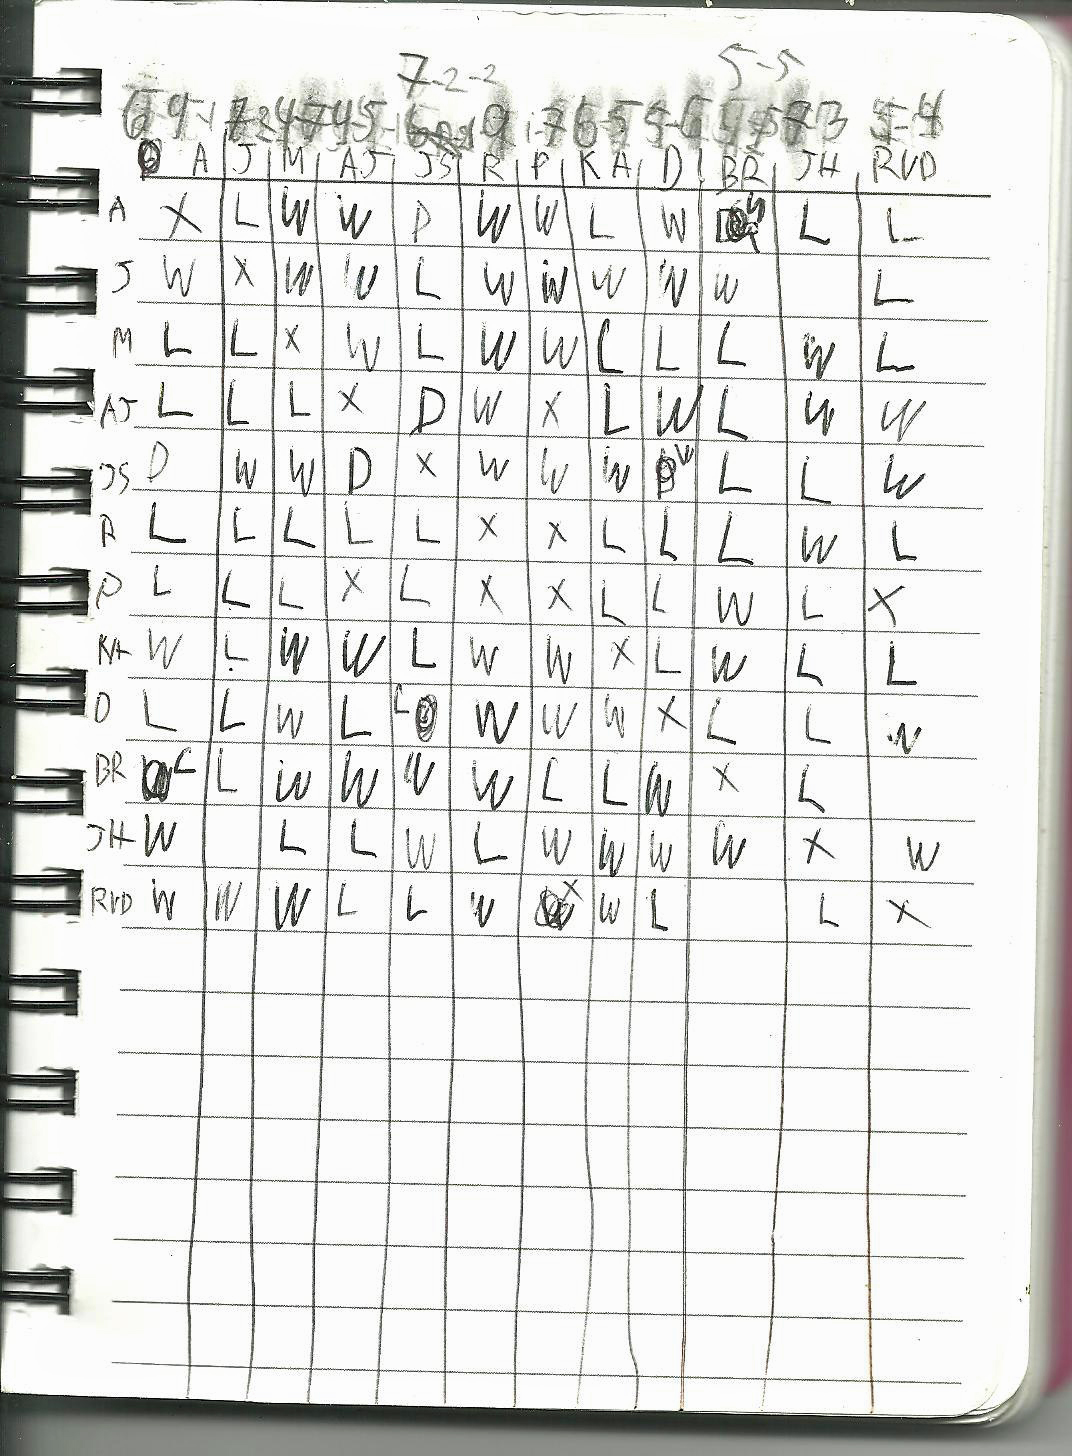 7-2-2 5-5
6-4-1 7-2 4-7 4-5-1 9 1-7 6-5 5-6 7-3 5-4
A J M AJ JS R P KA D BR JH RVD
A X L W W D W W L W L L
J W X W W L W W W W W L
M L L X W L W W L L L W L
AJ L L L X D W X L W L W W
JS D W W D X W W W W L L W
R L L L L L X X L L L W L
P L L L X L X X L L W L X
KA W L W W L W W X L W L L
D L L W L L W W W X L L W
BR L L W W W W L L W X L
JH W L L W L W W W W X W
RVD W W W L L W X W L L X